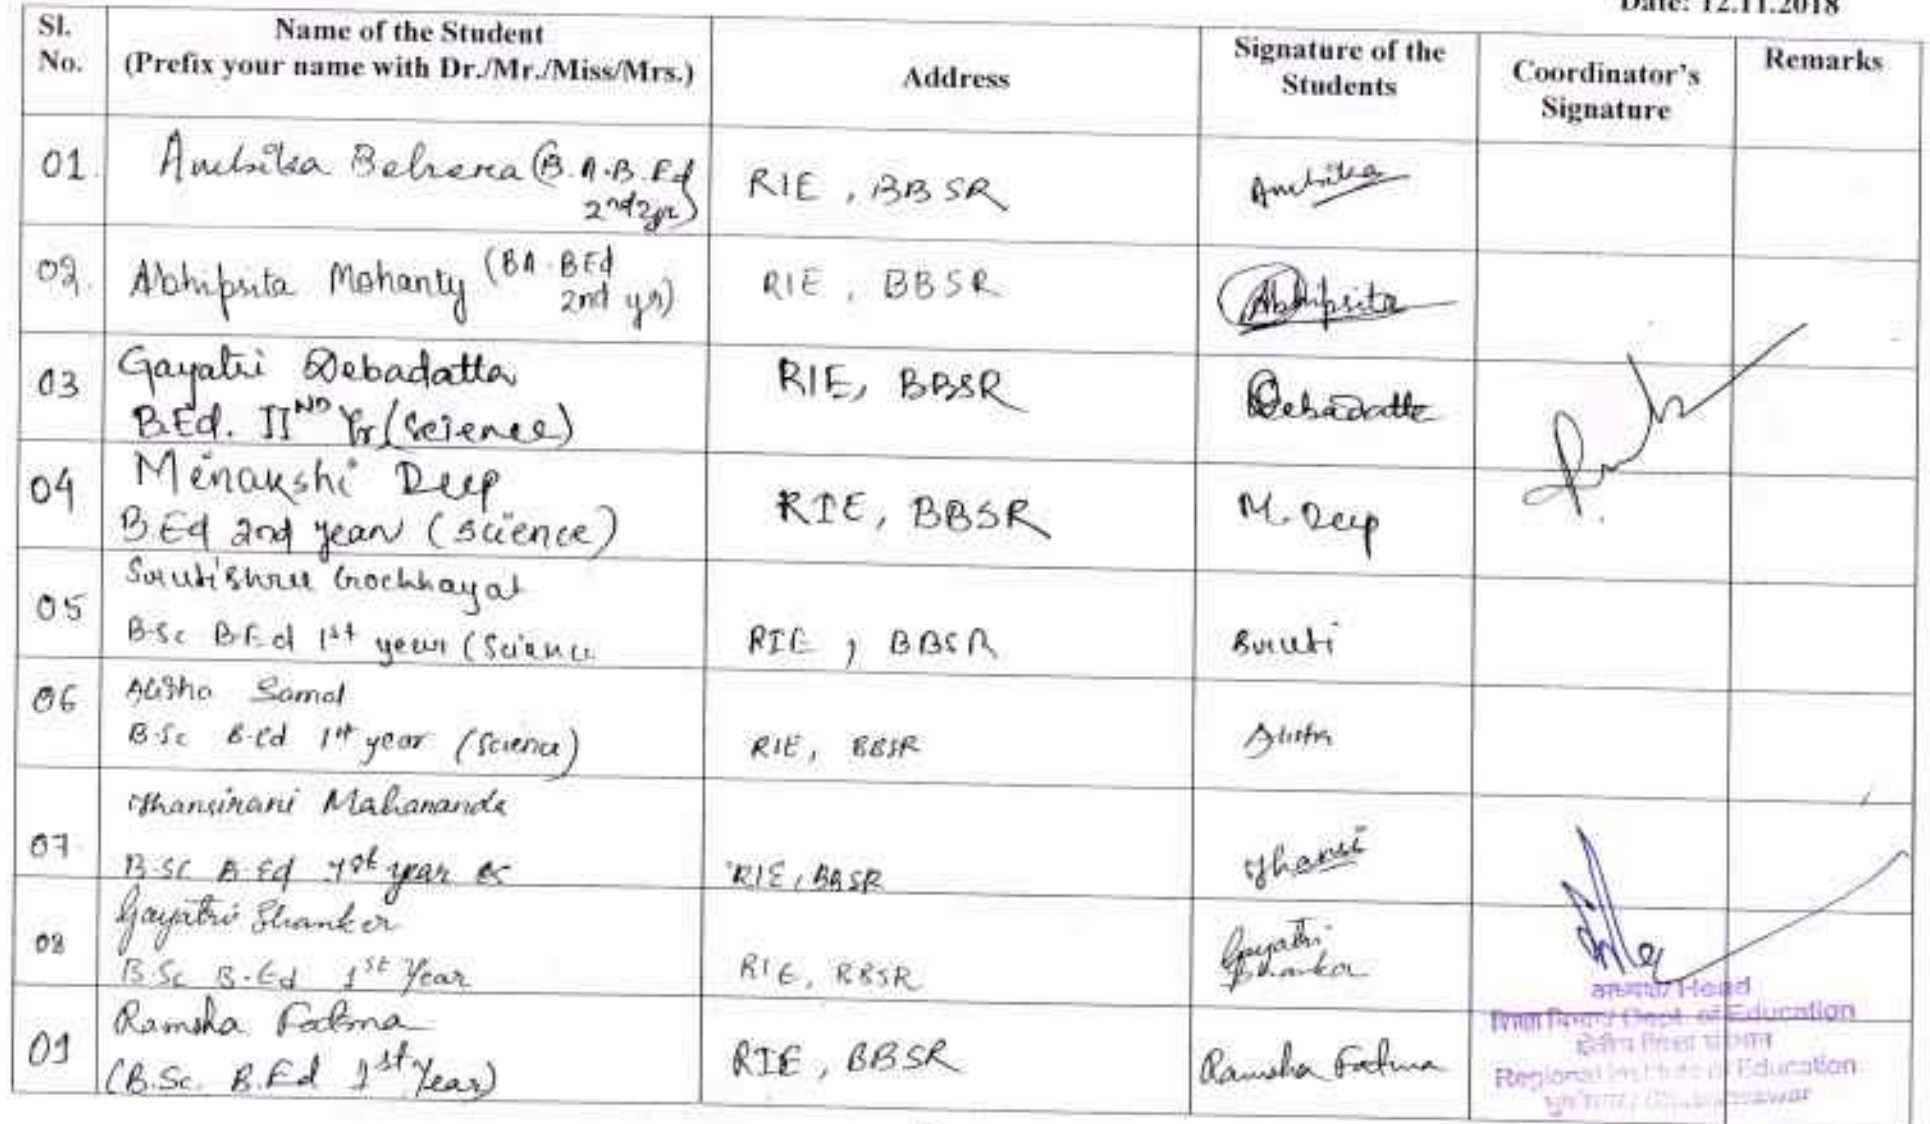 Date: 12.11.2018
Sl. No. Name of the Student (Prefix your name with Dr./Mr./Miss/Mrs.) Address Signature of the Students Coordinator's Signature Remarks
01. Ambika Behera (B.A.B.Ed 2nd yr) RIE, BBSR Ambika
02. Abhipsita Mohanty (BA.BEd 2nd yr) RIE, BBSR Abhipsita
03 Gayatri Debadatta RIE, BBSR Debadatta
B.Ed. IIND Yr (Science)
04 Menakshi Deep RIE, BBSR M. Deep
B Ed 2nd year (Science)
05 Srutishree Gochhayat
B.Sc B.Ed 1st year (Science RIE, BBSR Sruti
06 Alisha Samal
B.Sc B.Ed 1st year (Science) RIE, BBSR Alisha
07 Jhansirani Mahananda
B.SC B.Ed 1st year RIE, BBSR Jhansi
08 Gayatri Shanker
B.Sc B.Ed 1st Year RIE, BBSR Gayatri Shanker
09 Ramsha Fatma
(B.Sc. B.Ed 1st Year) RIE, BBSR Ramsha Fatma
अध्यक्ष/Head
शिक्षा विभाग/Dept. of Education
क्षेत्रीय शिक्षा संस्थान
Regional Institute of Education